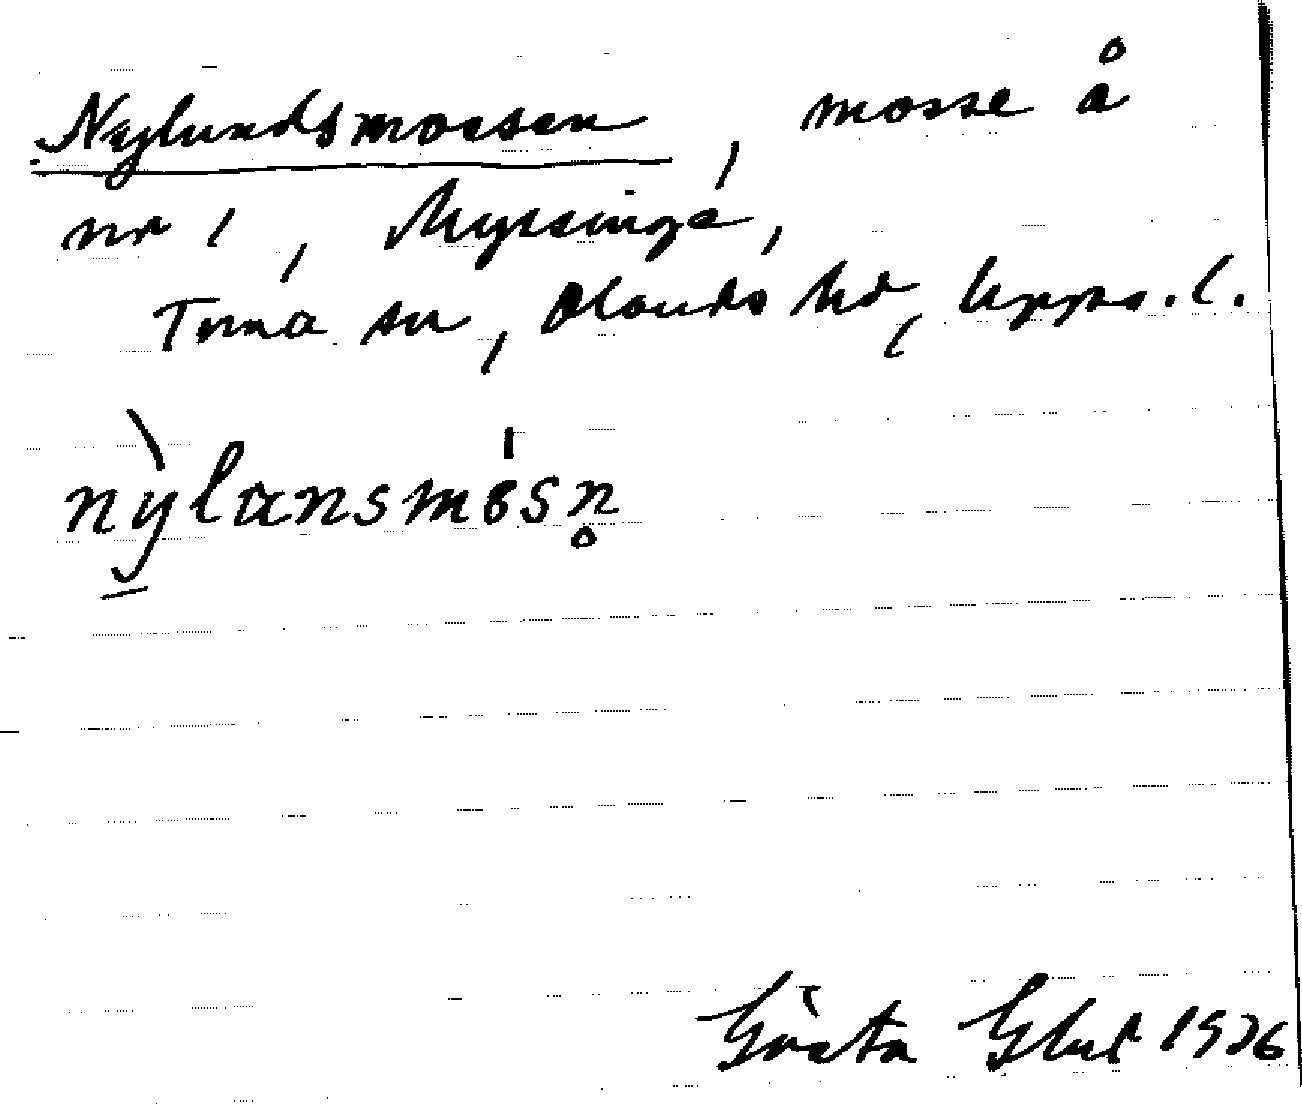 Nylundsmossen, mosse å
nr 1, Myssinge,
Tuna sn, Olands hd, Upps. l.
nỳlu̇nsmósn̥
Gösta 1926